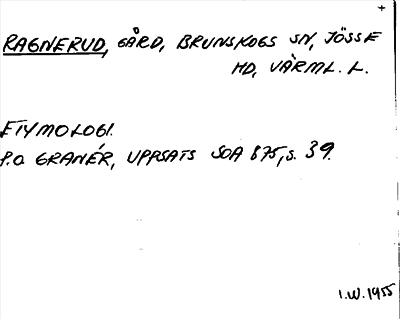 +
RAGNERUD, GÅRD, BRUNSKOGS SN, JÖSSE
HD, VÄRML. L.
ETYMOLOGI.
P.O. GRANÉR, UPPSATS SOA 875, s. 39.
I.W. 1955